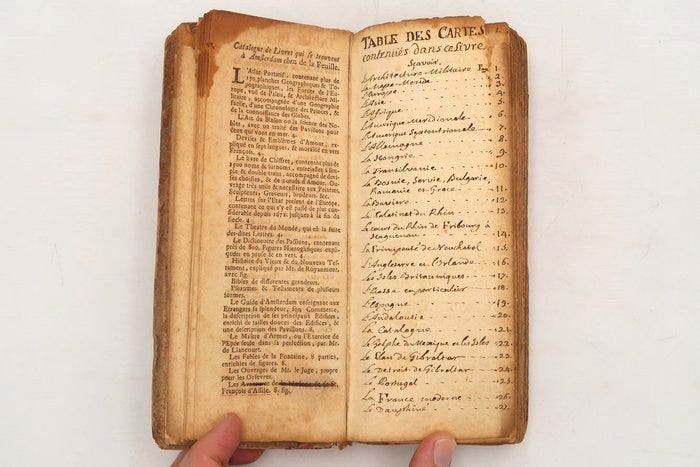 Catalogue de Livres qui se trouvent
à Amsterdam chez de la Feuille.
L'Atlas Portatif, contenant plus de
150 planches Geographiques & To-
pographiques, les Forces de l'Eu-
rope, vuë de Palais, & Architecture Mi-
litaire, accompagnée d'une Geographie
facile, d'une Chronologie des Princes, &
de la connoissance des Globes.
L'Art du Blason ou la science des No-
bles, avec un traité des Pavillons pour
ceux qui vont en mer. 4.
Devises & Emblêmes d'Amour, ex-
pliqué en sept langues, & moralisé en vers
François. 4.
Le livre de Chiffres, contenant plus de
noms & surnoms, entrelassés sim-
ple & double traits, accompagné de devi-
ses choisies, & de nœuds d'Amour. Ou-
vrage très utile & necessaire aux Peintres,
Sculpteurs, Graveurs, Brodeurs, &c.
Lettres sur l'Etat present de l'Europe,
contenant ce qui s'y est passé de plus con-
siderable depuis 1672. jusques à la fin du
siecle. 4
Le Theatre du Monde, qui est la suite
des-dites Lettres. 4.
Le Dictionaire des Passions, contenant
près de 500. Figures Hieroglifiques expli-
quées en prose & en vers. 4.
Histoire du Vieux & du Nouveau Tes-
tament, expliqué par Mr. de Royaumont,
avec fig.
Bibles de differentes grandeurs.
Pseaumes & Testaments de plusieurs
formes.
Le Guide d'Amsterdam enseignant aux
Etrangers sa splendeur, son Commerce,
la description de ses principaux Edifices,
enrichi de tailles douces des Edifices, &
une description des Pavillons. 8.
Le Maître d'Armes, ou l'Exercice de
l'Epée seule dans sa perfection, par Mr.
de Liancourt.
Les Fables de la Fontaine, 8 parties,
enrichies de figures. 8.
Les Ouvrages de Mr. le Juge, propre
pour les Orfevres.
Les de St.
François d'Assise. 8. fig.
TABLE DES CARTES
contenuës dans ce livre
Sçavoir.
L'Architecture Militaire 1.
La Mappe-Monde 2.
L'Europe 3.
L'Asie 4.
L'Afrique 5.
L'Amerique Meridionale 6.
L'Amerique Septentrionale 7.
L'Allemagne 8.
La Hongrie 9.
La Transilvanie 10.
La Bosnie, Servie, Bulgarie,
Romanie et Grece 11.
La Baviere 12.
Le Palatinat du Rhin 13.
Le cours du Rhin de Fribourg à
Haguenau 14.
La Principauté de Neuchatel 15.
L'Angleterre et l'Irlande 16.
Les Isles Britanniques 17.
L'Ecosse en particulier 18.
L'Espagne 19.
L'Andalousie 20.
La Catalogne 21.
Le Golphe du Mexique et les Isles 22.
Le Plan de Gibraltar 23.
Le Detroit de Gibraltar 24.
Le Portugal 25.
La France moderne 26.
Le Dauphiné 27.